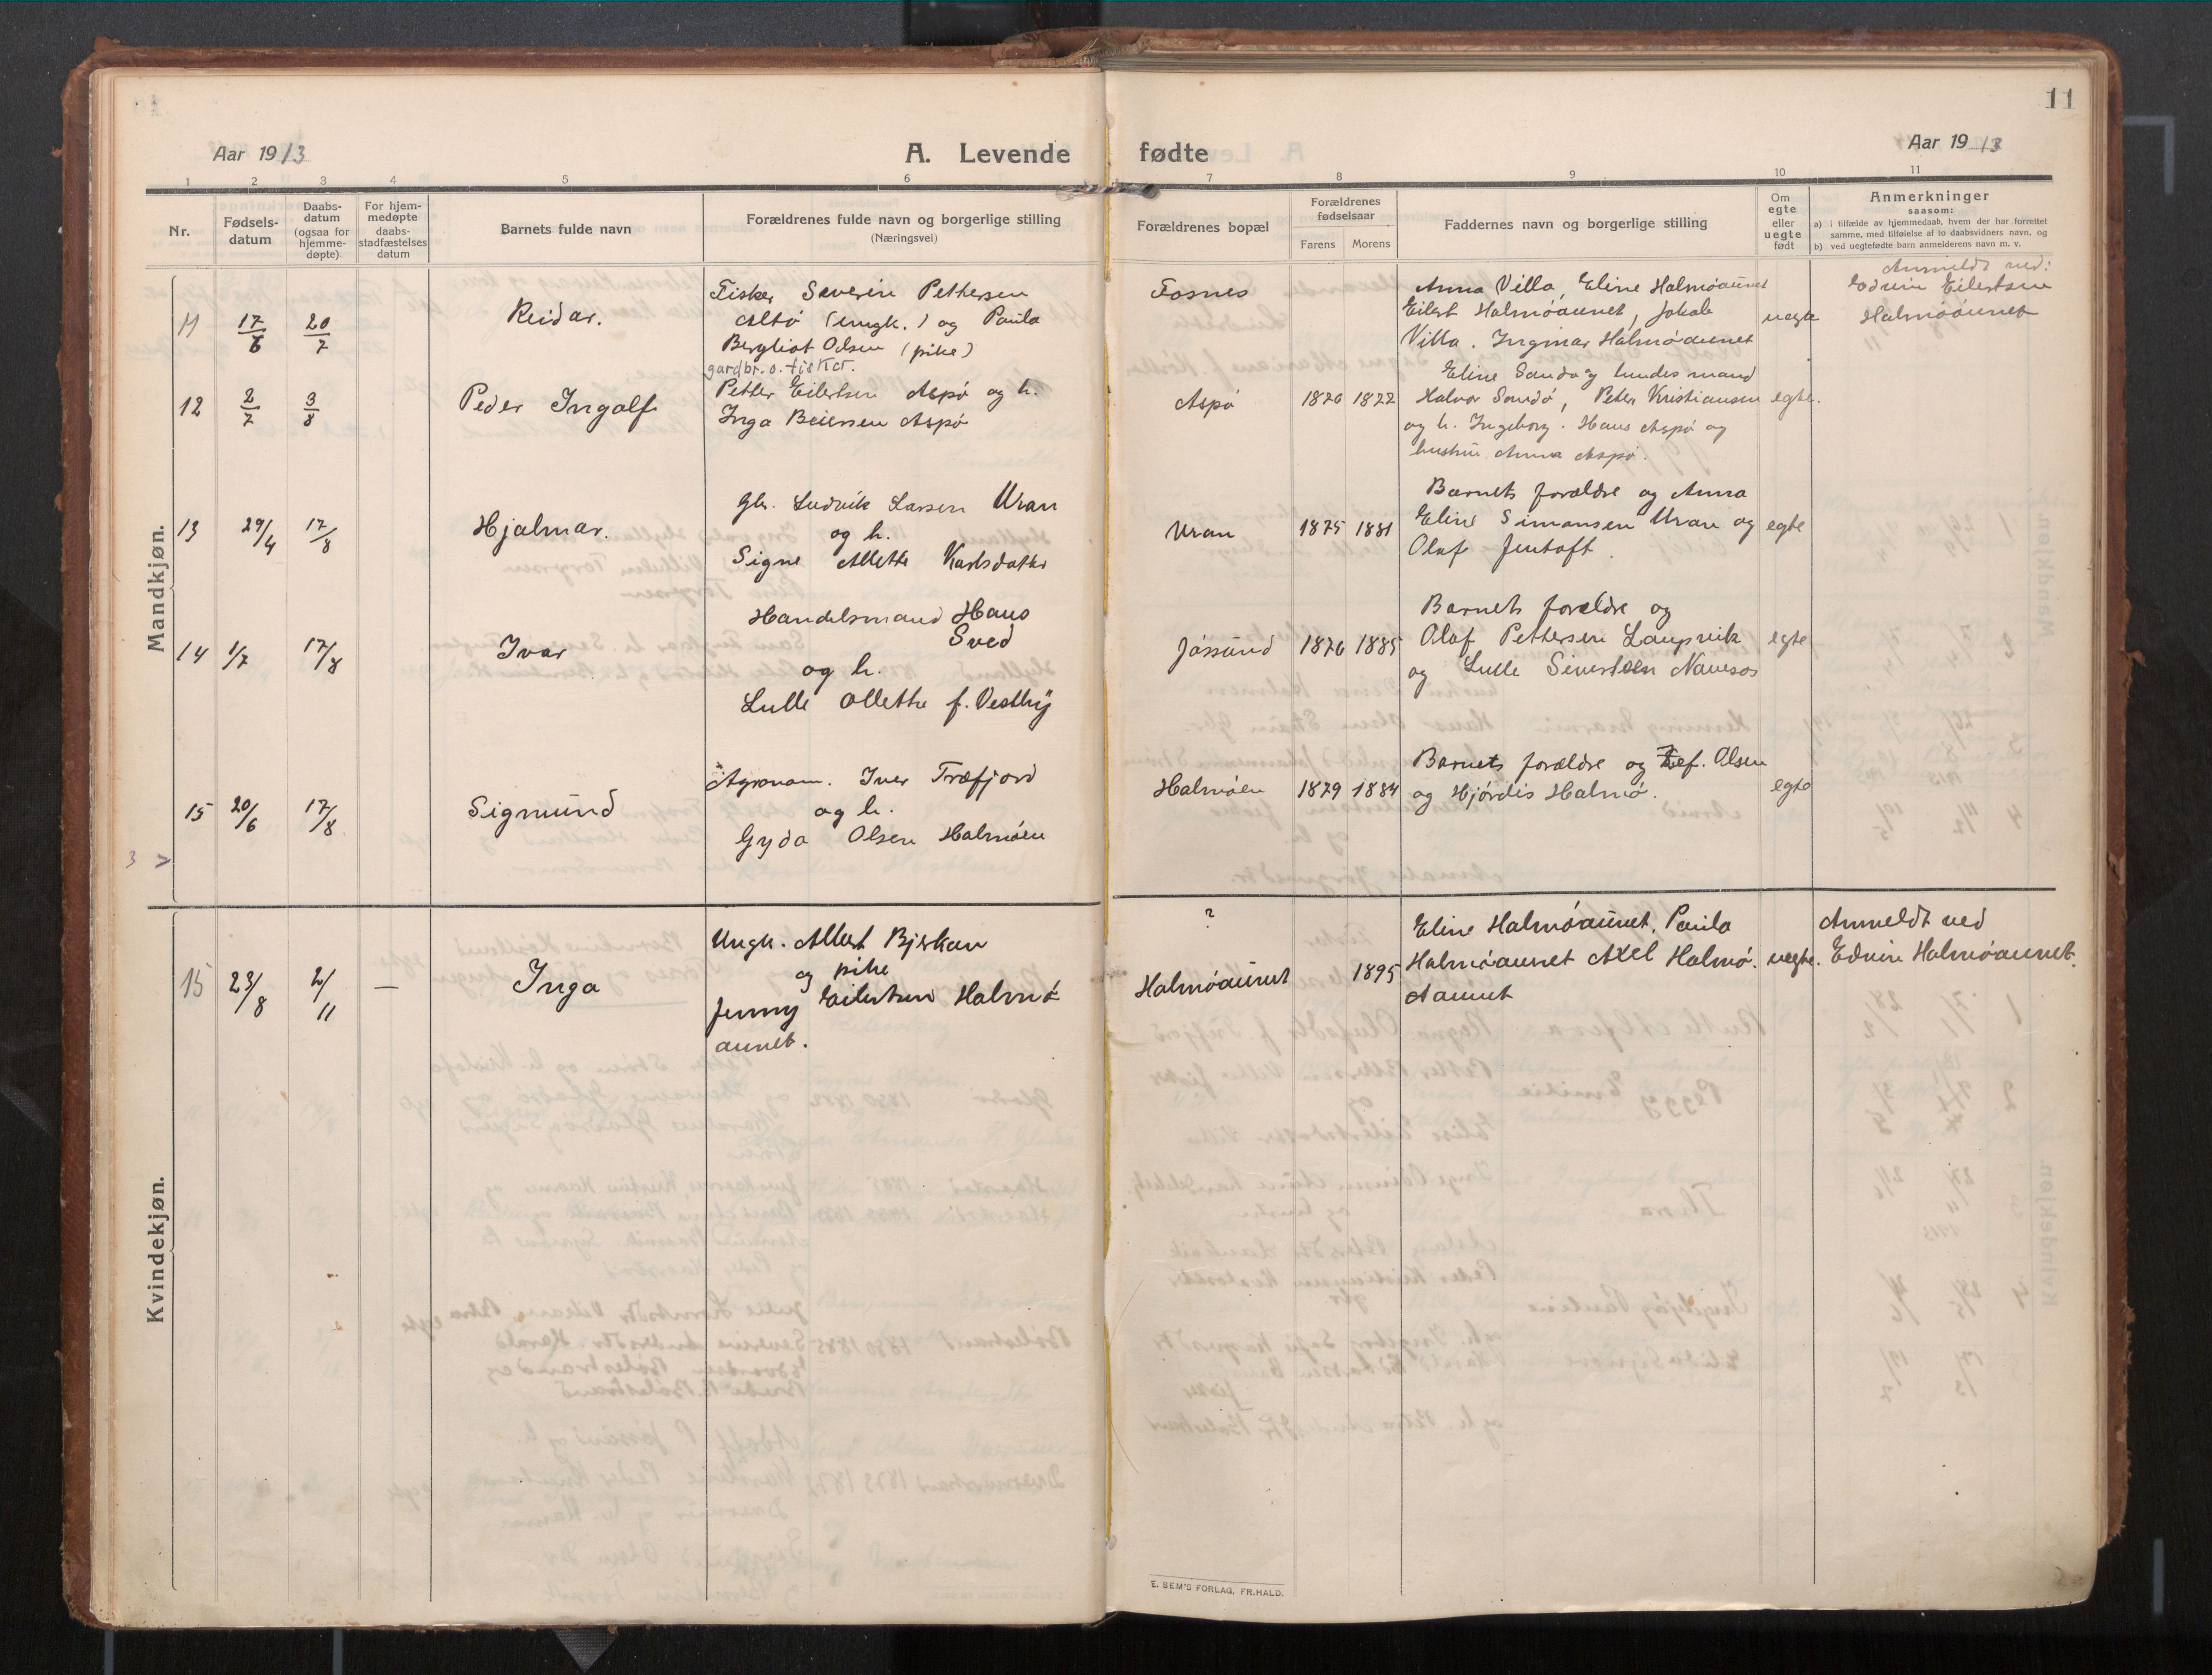 11
Aar 1913
A. Levende fødte
Aar 1913
1 2 3 4 5 6 7 8 9 10 11
Nr.
Fødsels-
datum
Daabs-
datum
(ogsaa for
hjemme-
døpte)
For hjem-
medøpte
daabs-
stadfæstelses
datum
Barnets fulde navn
Forældrenes fulde navn og borgerlige stilling
(Næringsvei)
Forældrenes bopæl
Forældrenes
fødselsaar
Farens Morens
Faddernes navn og borgerlige stilling
Om
egte
eller
uegte
født
Anmerkninger
saasom:
a) i tilfælde av hjemmedaab, hvem der har forrettet
samme, med tilføielse af to daabsvidners navn, og
b) ved uegtefødte barn anmelderens navn m. v.
Mandkjøn.
11 17/6 20/7 Reidar.
Fisker Severin Pettersen
Altø (ungk.) og Paula
Bergliot Olsen (pike)
Fosnes
Anna Villa, Eline Halmøaunet
Eilert Halmøaunet, Jakob
Villa. Ingmar Halmøaunet
uegte
Anmeldt ved:
Edvin Eilertsen
Halmøaunet
12 2/7 3/8 Peder Ingolf
gardbr. o. fisker.
Petter Eilertsen Aspø og h.
Inga Beiersen Aspø
Aspø 1870 1872
Eline Sandø
Halvor Sandø, Peter Kristiansen
og h. Ingeborg. Hans Aspø og
hustru Anna Aspø.
egte.
13 29/4 17/8 Hjalmar.
Gbr. Ludvik Larsen Uran
og h.
Signe Alette Karlsdatter
Uran 1875 1881
Barnets forældre og Anna
Eline Simonsen Uran og
Olaf Jentoft.
egte
14 1/7 17/8 Ivar
Handelsmand Hans
Sved
og h.
Lulle Olletta f. Vestby
Jøssund 1876 1885
Barnets forældre og
Olaf Pettersen Laupvik
og Lulle Sivertsen Namsos
egte
15 20/6 17/8 Sigmund
Agronom. Iver Træfjord
og h.
Gyda Olsen Halmøen
Halmøen 1879 1884
Barnets forældre og Olsen
og Hjørdis Halmø.
egte
3 >
Kvindekjøn.
15 23/8 2/11 — Inga
Ungk. Albert Bjørkan
og pike
Jenny Eilertsen Halmø-
aunet.
?
Halmøaunet 1895
Eline Halmøaunet, Paula
Halmøaunet Axel Halmø.
Aaunet
uegte.
Anmeldt ved
Edvin Halmøaunet.
E. SEM'S FORLAG, FR.HALD.